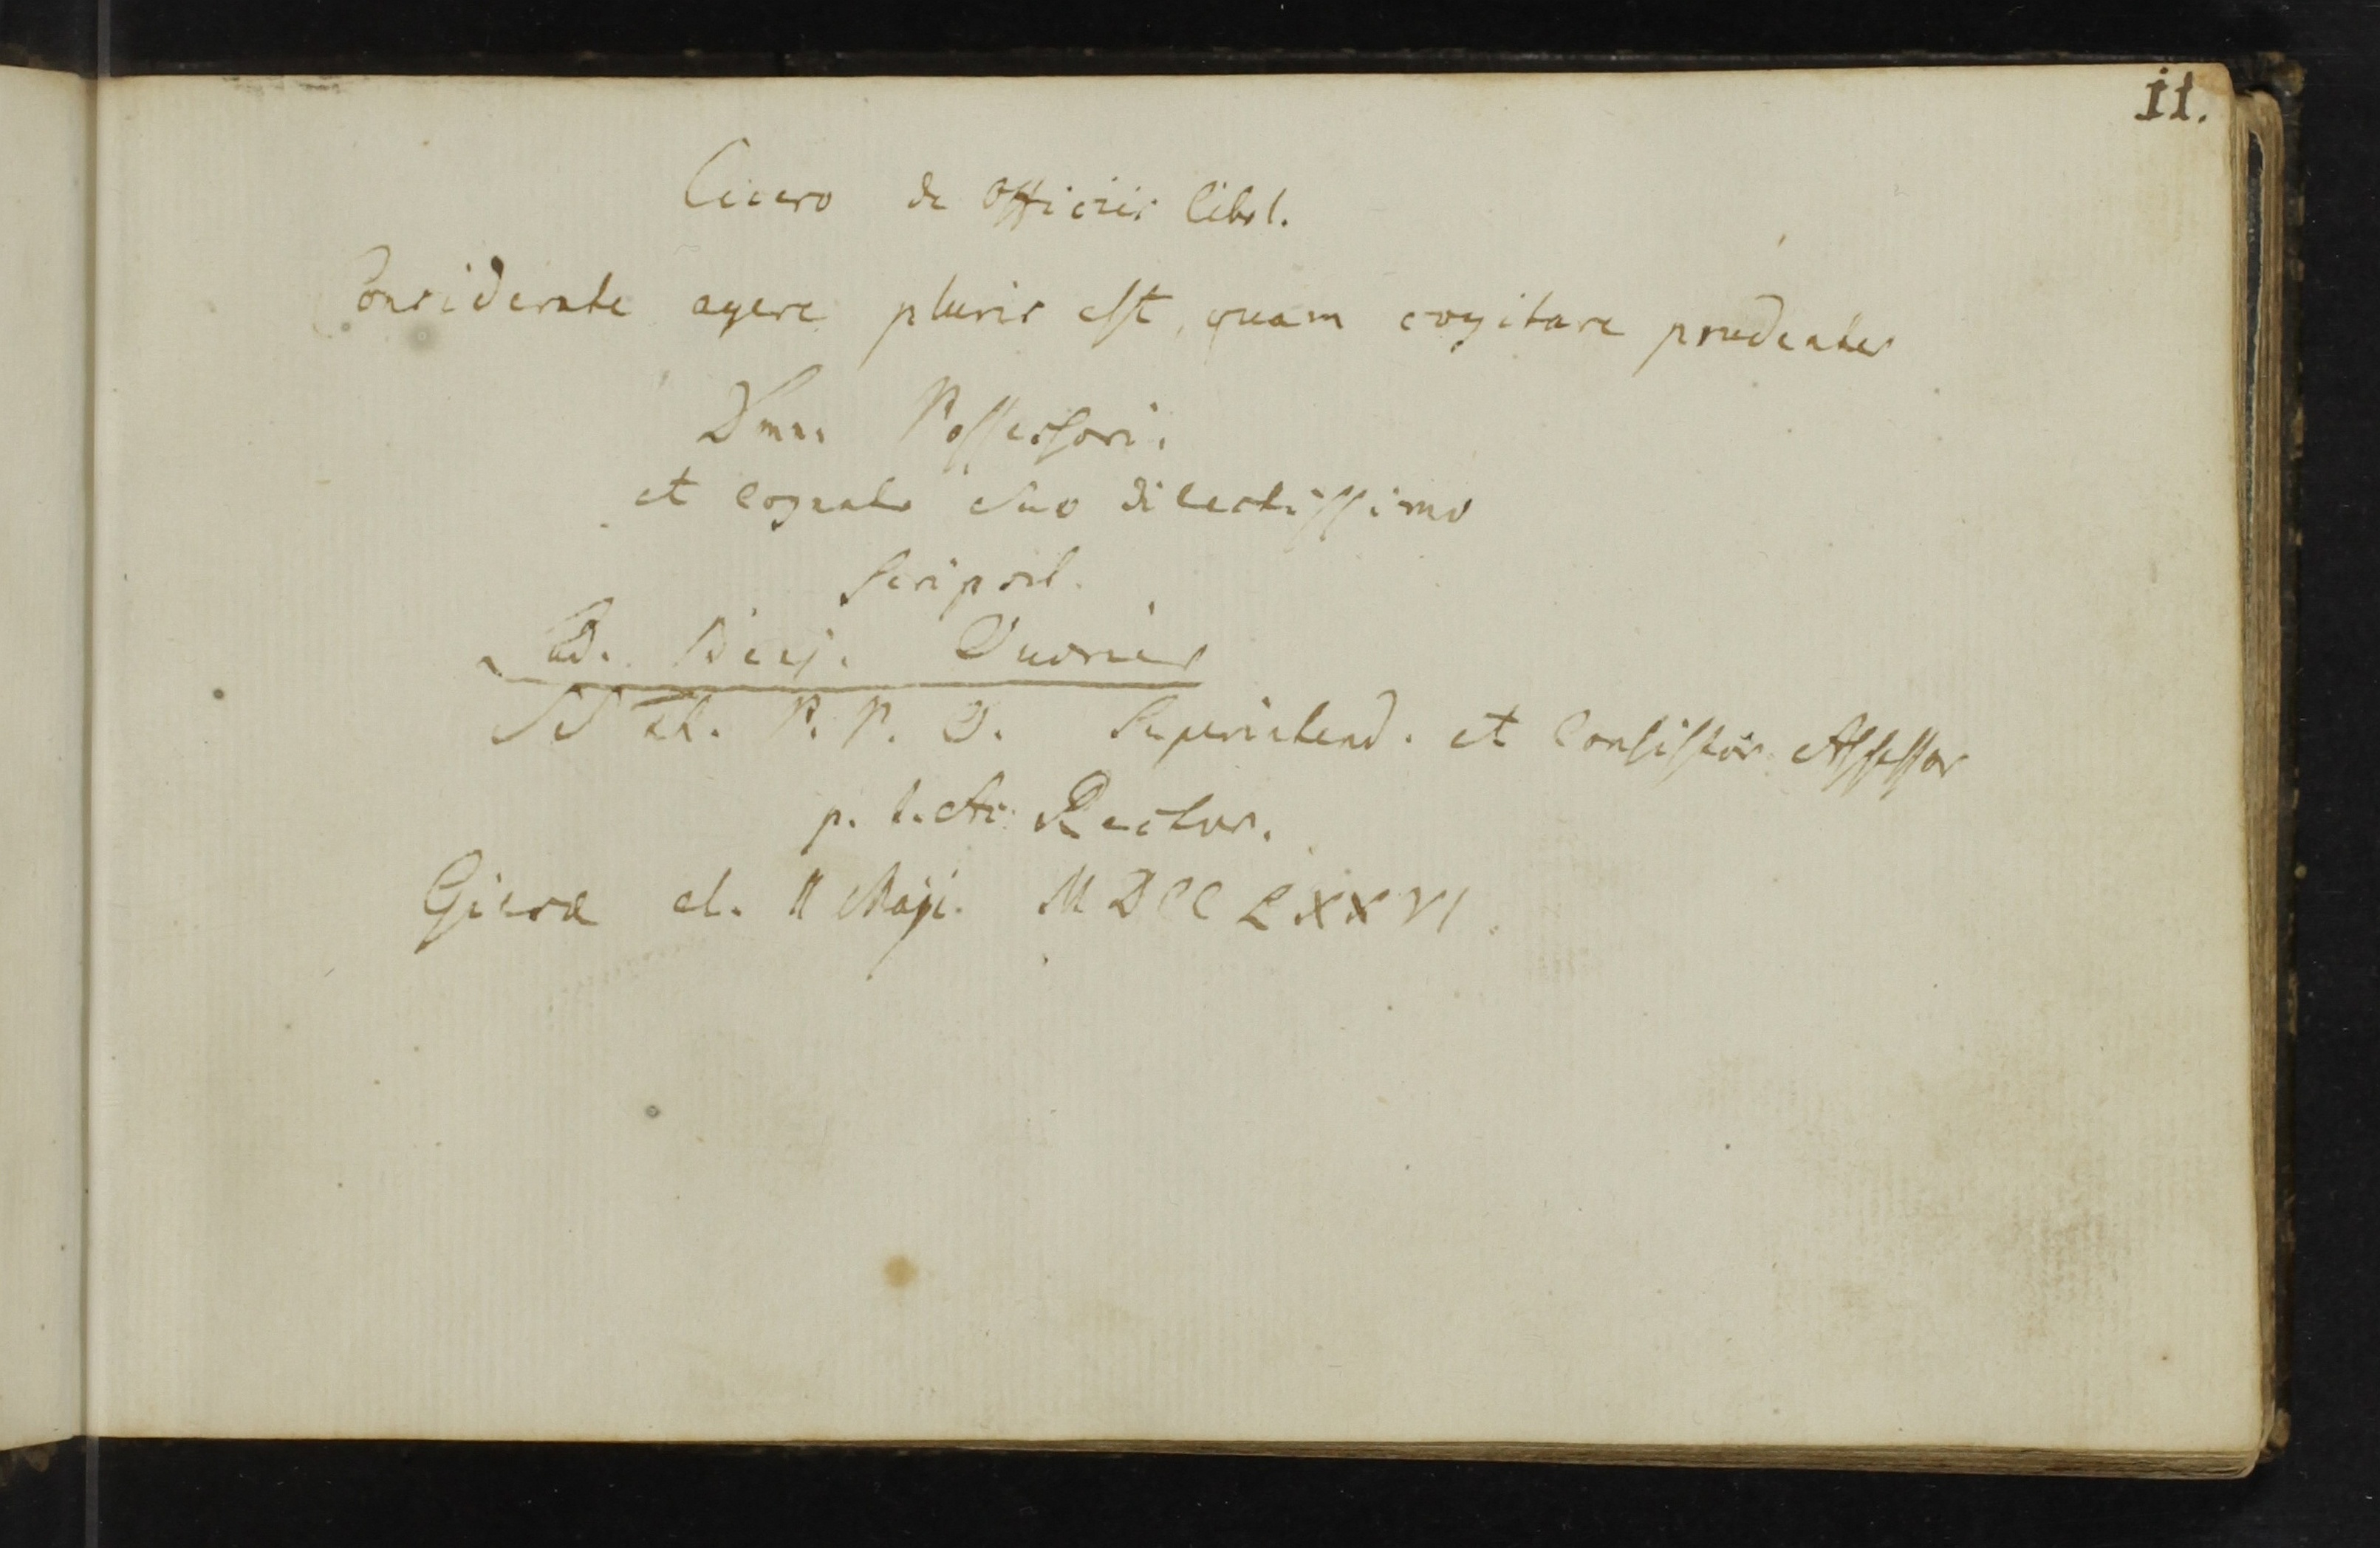 11.
Cicero de Officiis lib. I.
Considerate agere pluris est, quam cogitare prudenter
Dmn. Possessori.
et cognato suo dilectissimo
scripsit.
D. Benj. Ouvrier
SS Th. P. P. O. Superintend. et Consistor. Assessor
p. t. Ac. Rector.
Gissæ d. 11 Maji. MDCCLXXVI.